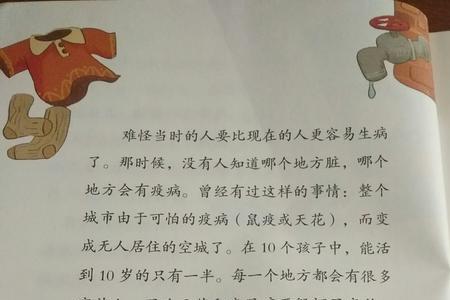 难怪当时的人要比现在的人更容易生病
了。那时候，没有人知道哪个地方脏，哪个
地方会有疫病。曾经有过这样的事情：整个
城市由于可怕的疫病（鼠疫或天花），而变
成无人居住的空城了。在10个孩子中，能活
到10岁的只有一半。每一个地方都会有很多